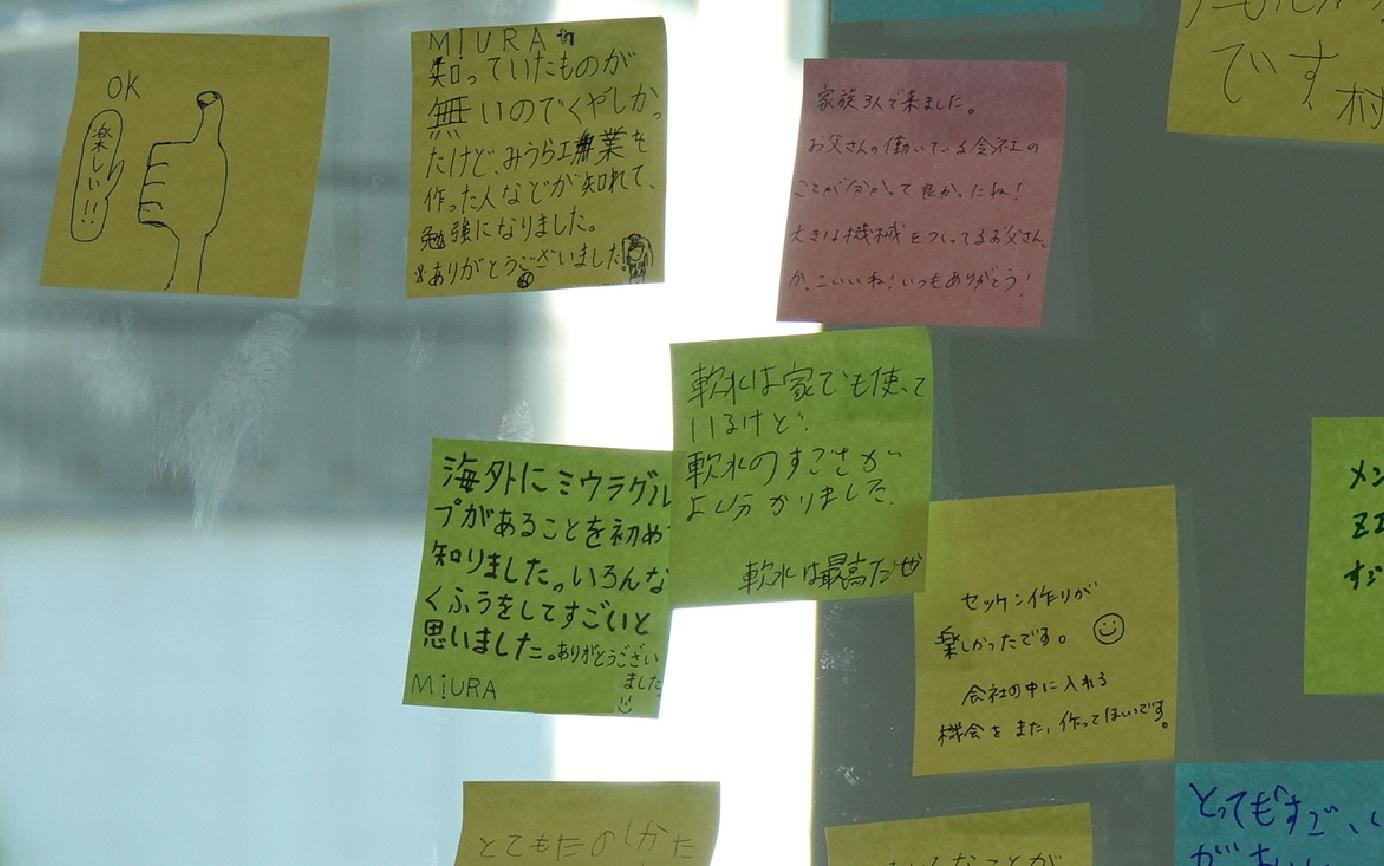 OK
楽しい!!
MiURAで
知っていたものが
無いのでくやしかっ
たけど、みうら工業を
作った人などが知れて、
勉強になりました。
ありがとうございました
家族3人で来ました。
お父さんの働いている会社の
ことが分かって良かったね!
大きな機械をつくってるお父さん、
かっこいいね!いつもありがとう!
です
村
軟水は家でも使って
いるけど、
軟水のすごさが
よくわかりました。
軟水は最高だぜ
海外にミウラグル
プがあることを初め
知りました。いろんな
くふうをしてすごいと
思いました。ありがとうござい
ました
MiURA
セッケン作りが
楽しかったです。
会社の中に入れる
機会をまた、作ってほしいです。
メン
とてもたのしかた
なことが
とってもすごい